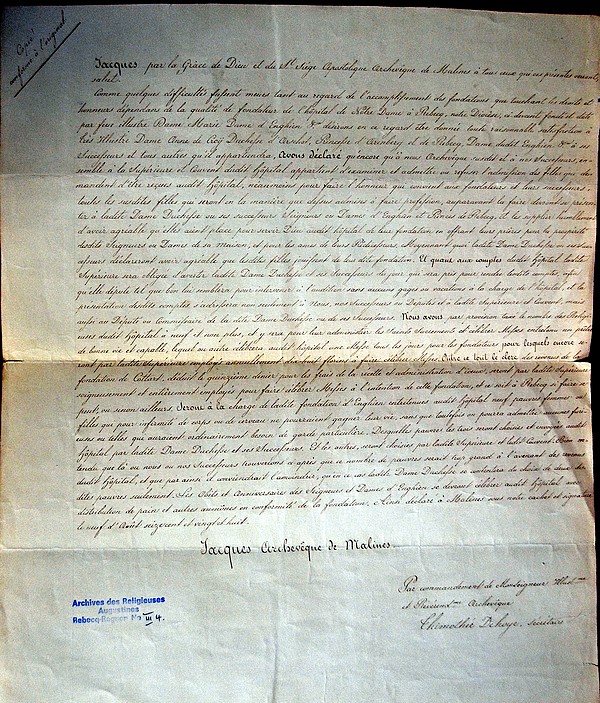 Copie
conforme à l'original
Jacques par la Grâce de Dieu et du St Siège Apostolique Archevêque de Malines à tous ceux que ces présentes verront
salut.
Comme quelques difficultés fussent mues tant au regard de l'accomplissement des fondations que touchant les droits et
honneurs dépendans de la qualité de fondateur de l'hôpital de Nôtre Dame à Rebecq, notre Diocèse, ci devant fondé et doté
par feue illustre Dame Marie Dame d'Enghien &ca desirans en ce regard être donnée toute raisonnable satisfaction à
très Illustre Dame Anne de Croÿ Duchesse d'Arschot, Princesse d'Arenberg et de Rebecq, Dame dudit Enghien &ca à ses
Successeurs et tous autres qu'il appartiendra, Avons Déclaré qu'encore qu'à nous Archevêque susdit et à nos Successeurs, en-
semble à la Supérieure et Couvent dudit Hôpital appartient d'examiner et admettre ou refuser l'admission des filles que de-
mandent d'être reçues audit hôpital, néanmoins pour faire l'honneur que convient aux fondateurs et leurs successeurs,
toutes les susdites filles qui seront en la manière que dessus admises à faire profession, auparavant la faire devront se présen-
ter à ladite Dame Duchesse ou ses successeurs Seigneurs ou Dames d'Enghien et Princes de Rebecq, et les supplier humblement
d'avoir agréable qu'elles aient place pour servir Dieu audit hôpital de leur fondation en offrant leurs prières pour la prospérité
desdits Seigneurs ou Dames de sa maison, et pour les ames de leurs Prédécesseurs, Moyennant quoi ladite Dame Duchesse ou ses suc-
cesseurs déclareront avoir agréable que lesdites filles jouissent de leur dite fondation. Et quant aux comptes dudit hôpital ladite
Supérieure sera obligée d'avertir ladite Dame Duchesse et ses Successeurs du jour qui sera pris pour rendre lesdits comptes, afin
qu'elle députe tel que bon lui semblera pour intervenir à l'audition sans aucuns gages ou vacations à la charge de l'hôpital, et la
présentation desdits comptes s'adressera non seulement à Nous, nos Successeurs ou Députés et à ladite Supérieure et Couvent, mais
aussi au Député ou Commissaire de la dite Dame Duchesse ou de ses Successeurs. Nous avons par provision taxé le nombre des Religi-
euses dudit hôpital à neuf et non plus, et y sera pour leur administrer les Saints Sacrements et célébrer Messes entretenu un prêtre
de bonne vie et capable, lequel ou autre célébrera audit hôpital une Messe tous les jours pour lesquels encore se-
ront par ladite Supérieure employés annuellement dix huit florins à faire célébrer Messes. Outre ce tout le clere des revenus de la
fondation de Collart, déduit le quinzième dénier pour les frais de la recette et administration d'iceux, seront par ladite Supérieure
soigneusement et entierement employés pour faire célébrer Messes à l'intention de cette fondation, et ce soit à Rebecq si faire se
peut, ou sinon ailleurs Seront à la charge de ladite fondation d'Enghien entretenues audit hôpital neuf pauvres femmes ou
filles que pour infirmité de corps ou de cerveau ne pourraient gagner leur vie, sans que toutefois on pourra admettre aucunes furi-
euses ou telles qui auraient ordinairement besoin de garde particulière. Desquelles pauvres les trois seront choisies et envoyées audit
hôpital par ladite Dame Duchesse et ses Successeurs. Et les autres, seront choisies par ladite Supérieure et ledit Couvent. Bien en-
tendu que là ou nous ou nos Successeurs trouverions ci après que ce nombre de pauvres serait trop grand à l'avenant des revenus
dudit hôpital, et que par ainsi il conviendrait l'amoindrir, qu'en ce cas ladite Dame Duchesse se contentera du choix de deux des-
dites pauvres seulement. Les Obits et Anniversaire des Seigneurs et Dames d'Enghien se devront célébrer audit hôpital avec
distribution de pain et autres aumônes en conformité de la fondation. Ainsi déclaré à Malines sous notre cachet et signature
le neuf d'Août seizecent et vingt et huit.
Jacques Archevêque de Malines.
Par commandement de Monseigneur Illust.me
et Révérend.me Archevêque
Thimothée Dehoye, secrétaire
Archives des Religieuses
Augustines
Rebecq-Rognon No III 4.